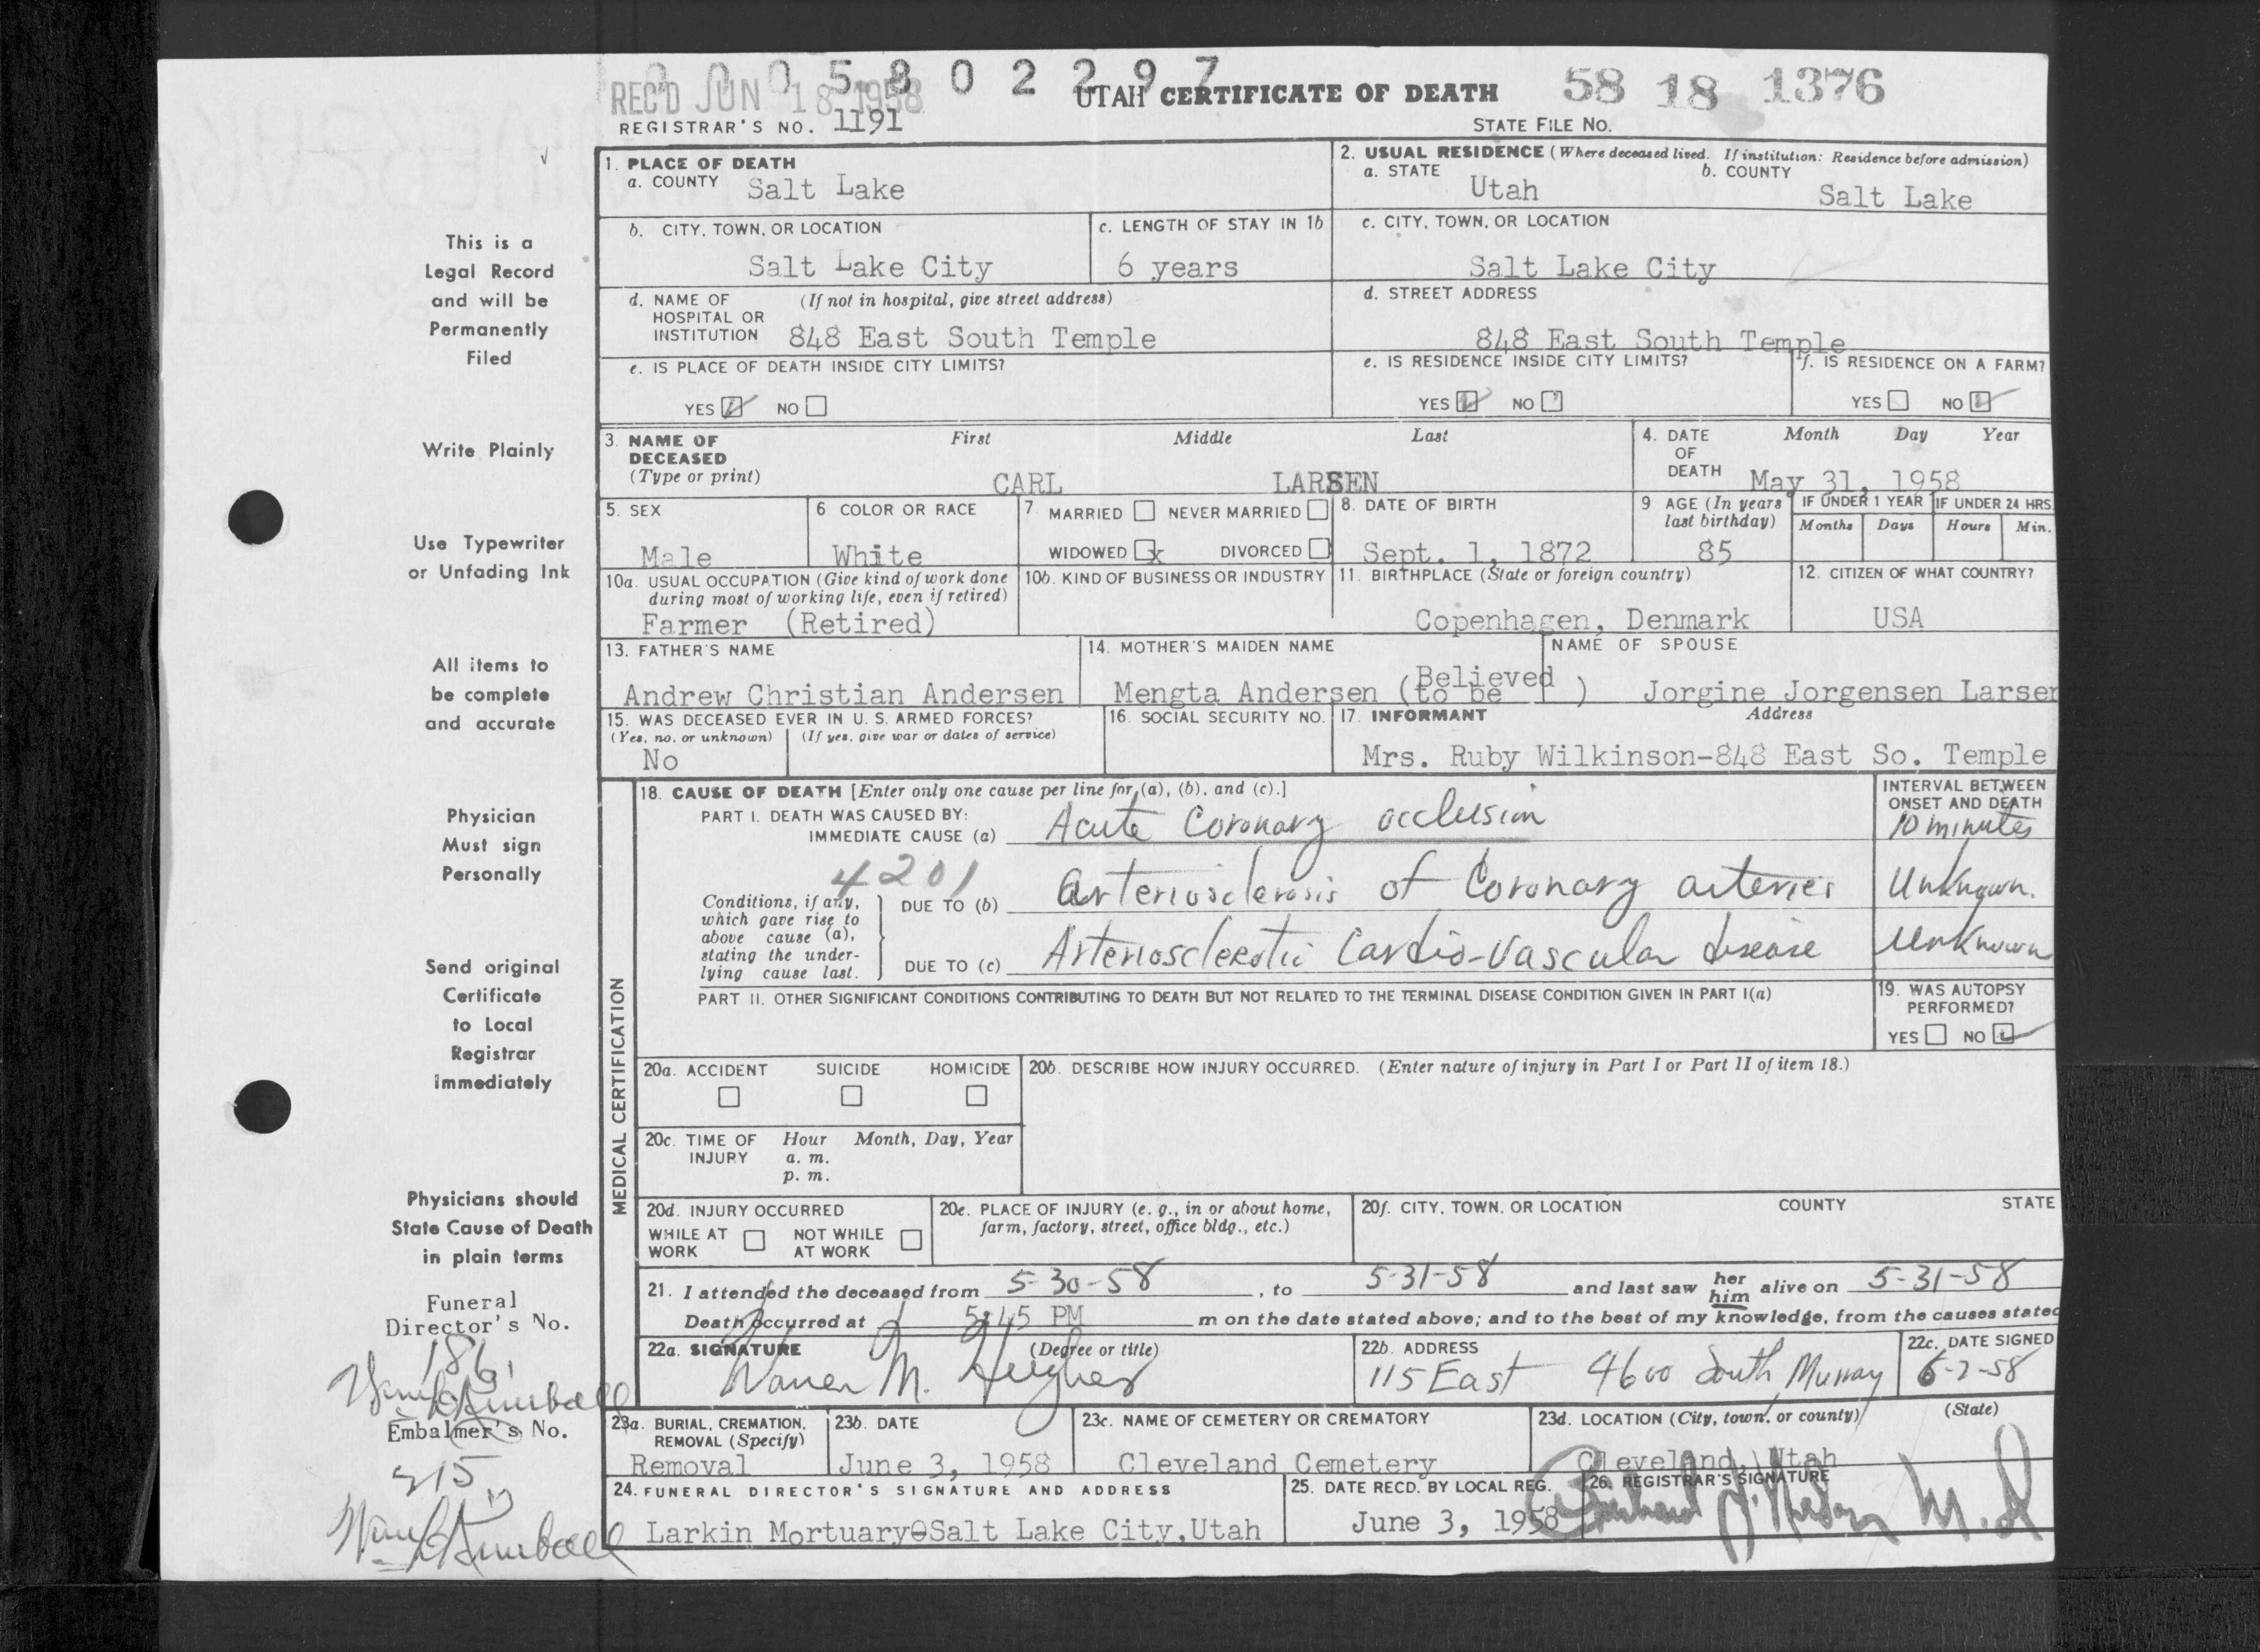 0005802297
REC'D JUN 18 1958 UTAH CERTIFICATE OF DEATH 58 18 1376
REGISTRAR'S NO. 1191 STATE FILE NO.
1. PLACE OF DEATH
a. COUNTY Salt Lake
2. USUAL RESIDENCE (Where deceased lived. If institution: Residence before admission)
a. STATE Utah b. COUNTY Salt Lake
b. CITY, TOWN, OR LOCATION Salt Lake City
c. LENGTH OF STAY IN 1b 6 years
c. CITY, TOWN, OR LOCATION Salt Lake City
d. NAME OF HOSPITAL OR INSTITUTION (If not in hospital, give street address) 848 East South Temple
d. STREET ADDRESS 848 East South Temple
e. IS PLACE OF DEATH INSIDE CITY LIMITS?
YES NO
e. IS RESIDENCE INSIDE CITY LIMITS?
YES NO
f. IS RESIDENCE ON A FARM?
YES NO
3. NAME OF DECEASED (Type or print) First Middle Last
CARL LARSEN
4. DATE OF DEATH Month Day Year
May 31, 1958
5. SEX Male
6. COLOR OR RACE White
7. MARRIED NEVER MARRIED
WIDOWED x DIVORCED
8. DATE OF BIRTH Sept. 1, 1872
9 AGE (In years last birthday) 85
IF UNDER 1 YEAR Months Days
IF UNDER 24 HRS. Hours Min.
10a. USUAL OCCUPATION (Give kind of work done during most of working life, even if retired)
Farmer (Retired)
10b. KIND OF BUSINESS OR INDUSTRY
11. BIRTHPLACE (State or foreign country)
Copenhagen, Denmark
12. CITIZEN OF WHAT COUNTRY?
USA
13. FATHER'S NAME
Andrew Christian Andersen
14. MOTHER'S MAIDEN NAME
Mengta Andersen (Believed to be )
NAME OF SPOUSE
Jorgine Jorgensen Larsen
15. WAS DECEASED EVER IN U. S. ARMED FORCES?
(Yes, no, or unknown) (If yes, give war or dates of service)
No
16. SOCIAL SECURITY NO.
17. INFORMANT Address
Mrs. Ruby Wilkinson-848 East So. Temple
MEDICAL CERTIFICATION
18. CAUSE OF DEATH [Enter only one cause per line for (a), (b), and (c).]
INTERVAL BETWEEN ONSET AND DEATH
PART I. DEATH WAS CAUSED BY:
IMMEDIATE CAUSE (a) Acute Coronary occlusion 10 minutes
4201
Conditions, if any, which gave rise to above cause (a), stating the underlying cause last.
DUE TO (b) Arteriosclerosis of Coronary arteries Unknown.
DUE TO (c) Arteriosclerotic Cardio-Vascular disease Unknown
PART II. OTHER SIGNIFICANT CONDITIONS CONTRIBUTING TO DEATH BUT NOT RELATED TO THE TERMINAL DISEASE CONDITION GIVEN IN PART I(a)
19. WAS AUTOPSY PERFORMED?
YES NO
20a. ACCIDENT SUICIDE HOMICIDE
20b. DESCRIBE HOW INJURY OCCURRED. (Enter nature of injury in Part I or Part II of item 18.)
20c. TIME OF INJURY Hour Month, Day, Year
a. m.
p. m.
20d. INJURY OCCURRED
WHILE AT WORK NOT WHILE AT WORK
20e. PLACE OF INJURY (e. g., in or about home, farm, factory, street, office bldg., etc.)
20f. CITY, TOWN, OR LOCATION COUNTY STATE
21. I attended the deceased from 5-30-58, to 5-31-58 and last saw her him alive on 5-31-58
Death occurred at 5:45 PM m on the date stated above; and to the best of my knowledge, from the causes stated
22a. SIGNATURE (Degree or title)
Warren M. Hughes
22b. ADDRESS
115 East 4600 South Murray
22c. DATE SIGNED
6-2-58
23a. BURIAL, CREMATION, REMOVAL (Specify)
Removal
23b. DATE
June 3, 1958
23c. NAME OF CEMETERY OR CREMATORY
Cleveland Cemetery
23d. LOCATION (City, town, or county) (State)
Cleveland, Utah
24. FUNERAL DIRECTOR'S SIGNATURE AND ADDRESS
Larkin Mortuary Salt Lake City, Utah
25. DATE RECD. BY LOCAL REG.
June 3, 1958
26. REGISTRAR'S SIGNATURE
M. D
This is a
Legal Record
and will be
Permanently
Filed
Write Plainly
Use Typewriter
or Unfading Ink
All items to
be complete
and accurate
Physician
Must sign
Personally
Send original
Certificate
to Local
Registrar
Immediately
Physicians should
State Cause of Death
in plain terms
Funeral
Director's No.
186
Embalmer's No.
315